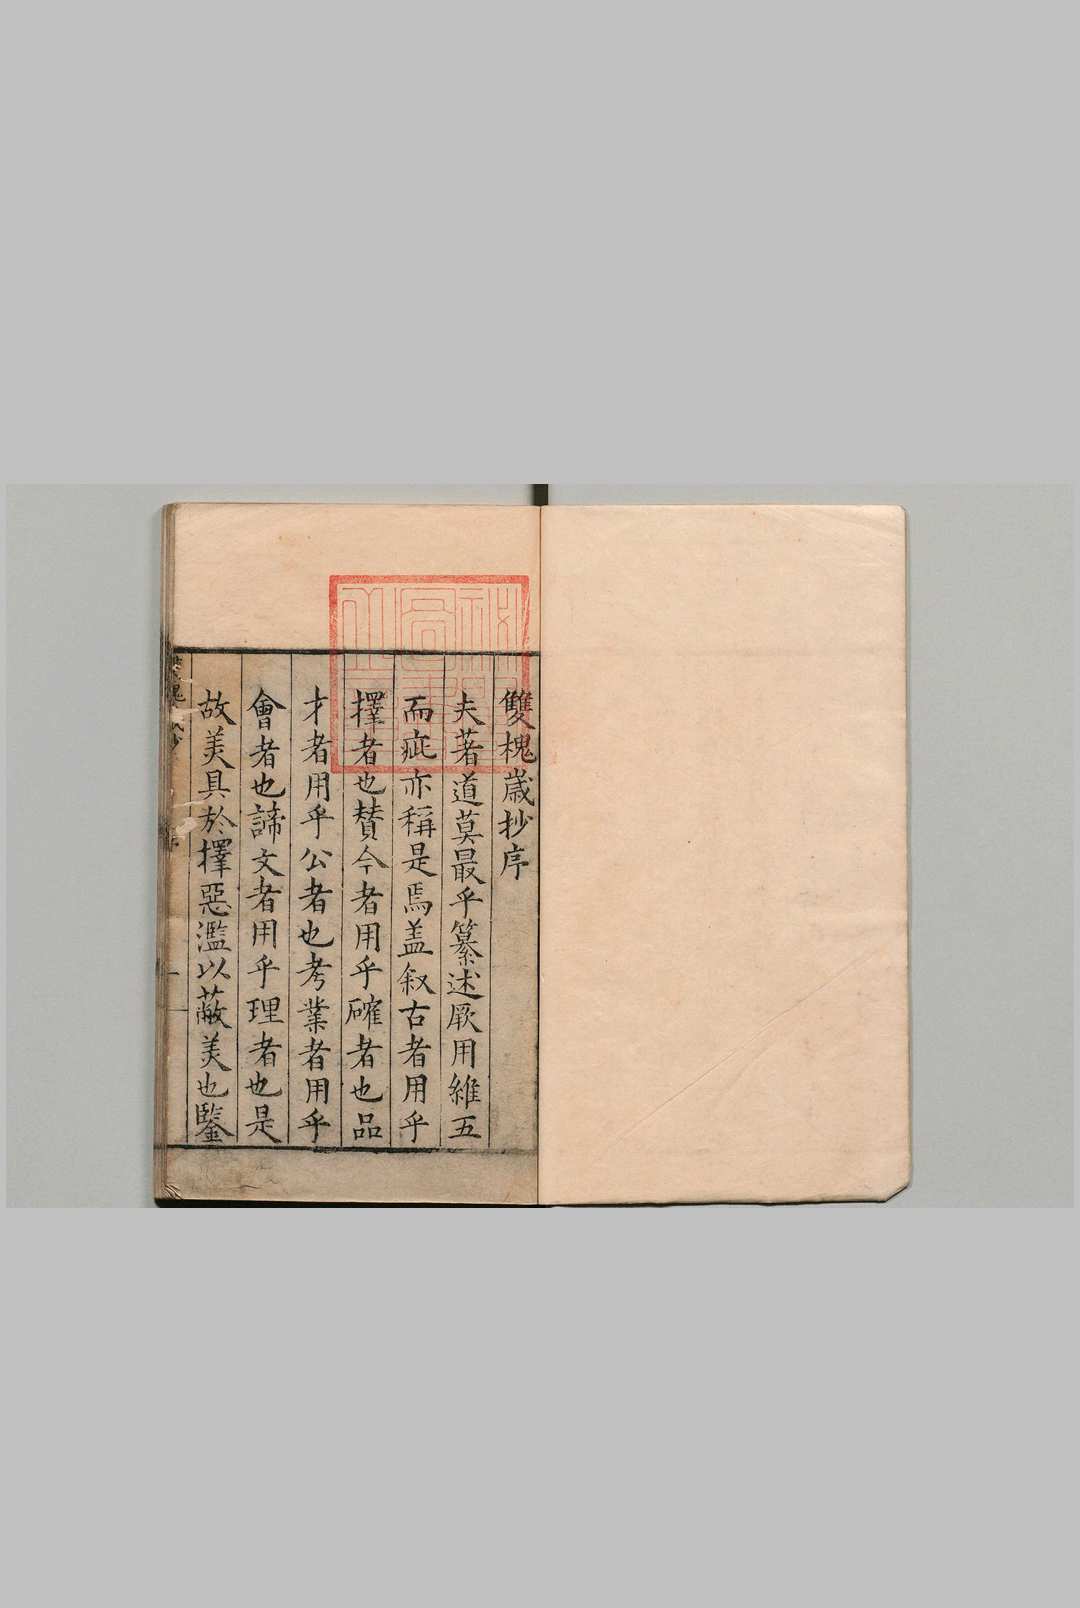 雙槐歲抄序
夫著道莫最乎纂述厥用維五
而疵亦稱是焉盖叙古者用乎
擇者也賛今者用乎確者也品
才者用乎公者也考業者用乎
會者也諦文者用乎理者也是
故美具於擇惡濫以蔽美也鑒